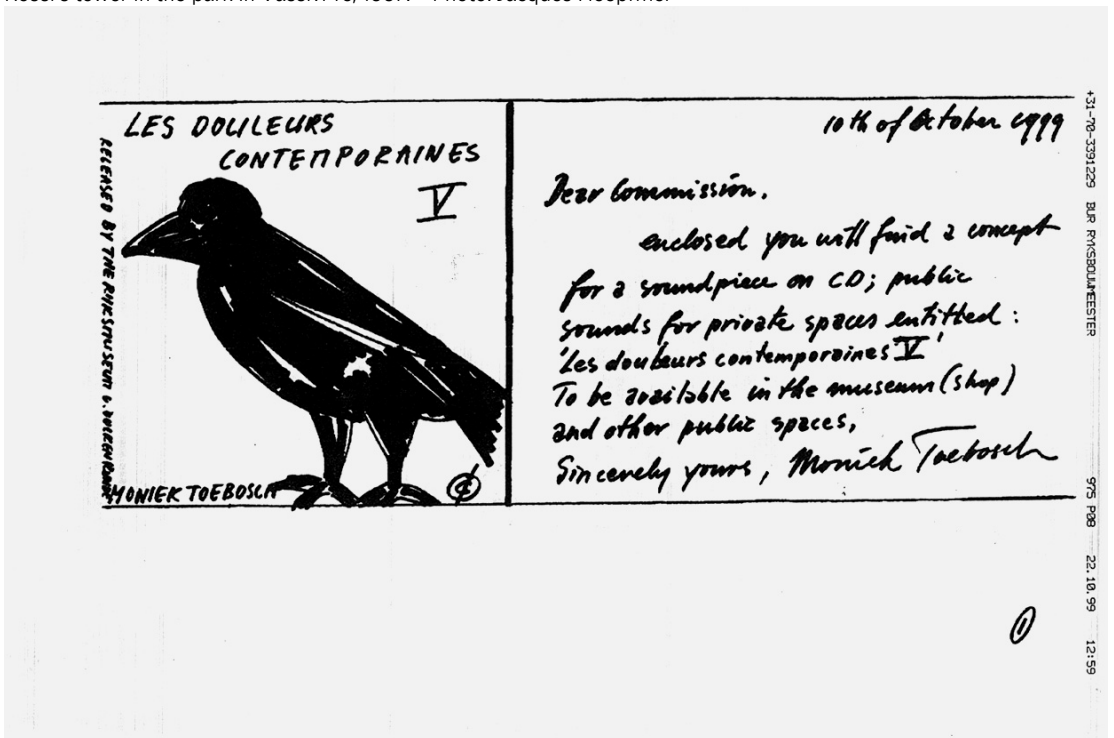 LES DOULEURS
CONTEMPORAINES
V
RELEASED BY THE RYKSMUSEUM
MONIEK TOEBOSCH
10th of October 1999
Dear Commission,
enclosed you will find a concept
for a soundpiece on CD; public
sounds for private spaces entitled:
'Les douleurs contemporaines V'
To be available in the museum (shop)
and other public spaces,
Sincerely yours, Moniek Toebosch
+31-70-3391229 BUR RYKSBOUWMEESTER 975 P08 22.10.99 12:59
1